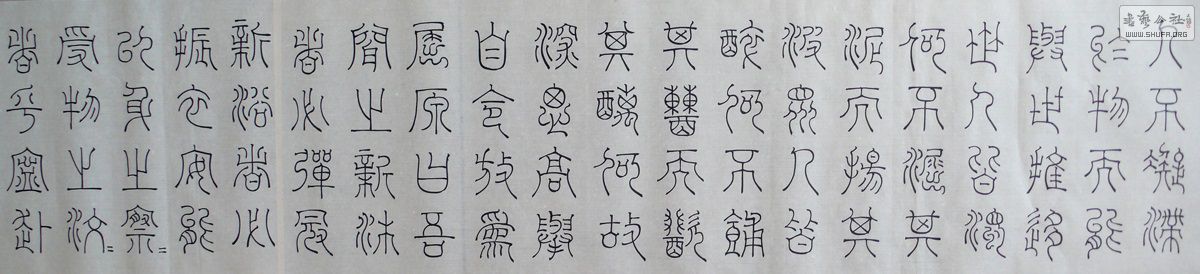 人不凝滯
於物而能
與世推移
世人皆濁
何不淈其
泥而揚其
波眾人皆
醉何不餔
其糟而歠
其醨何故
深思高舉
自令放為
屈原曰吾
聞之新沐
者必彈冠
新浴者必
振衣安能
以身之察〻
受物之汶〻
者乎寧赴
書藝公社
WWW.SHUFA.ORG